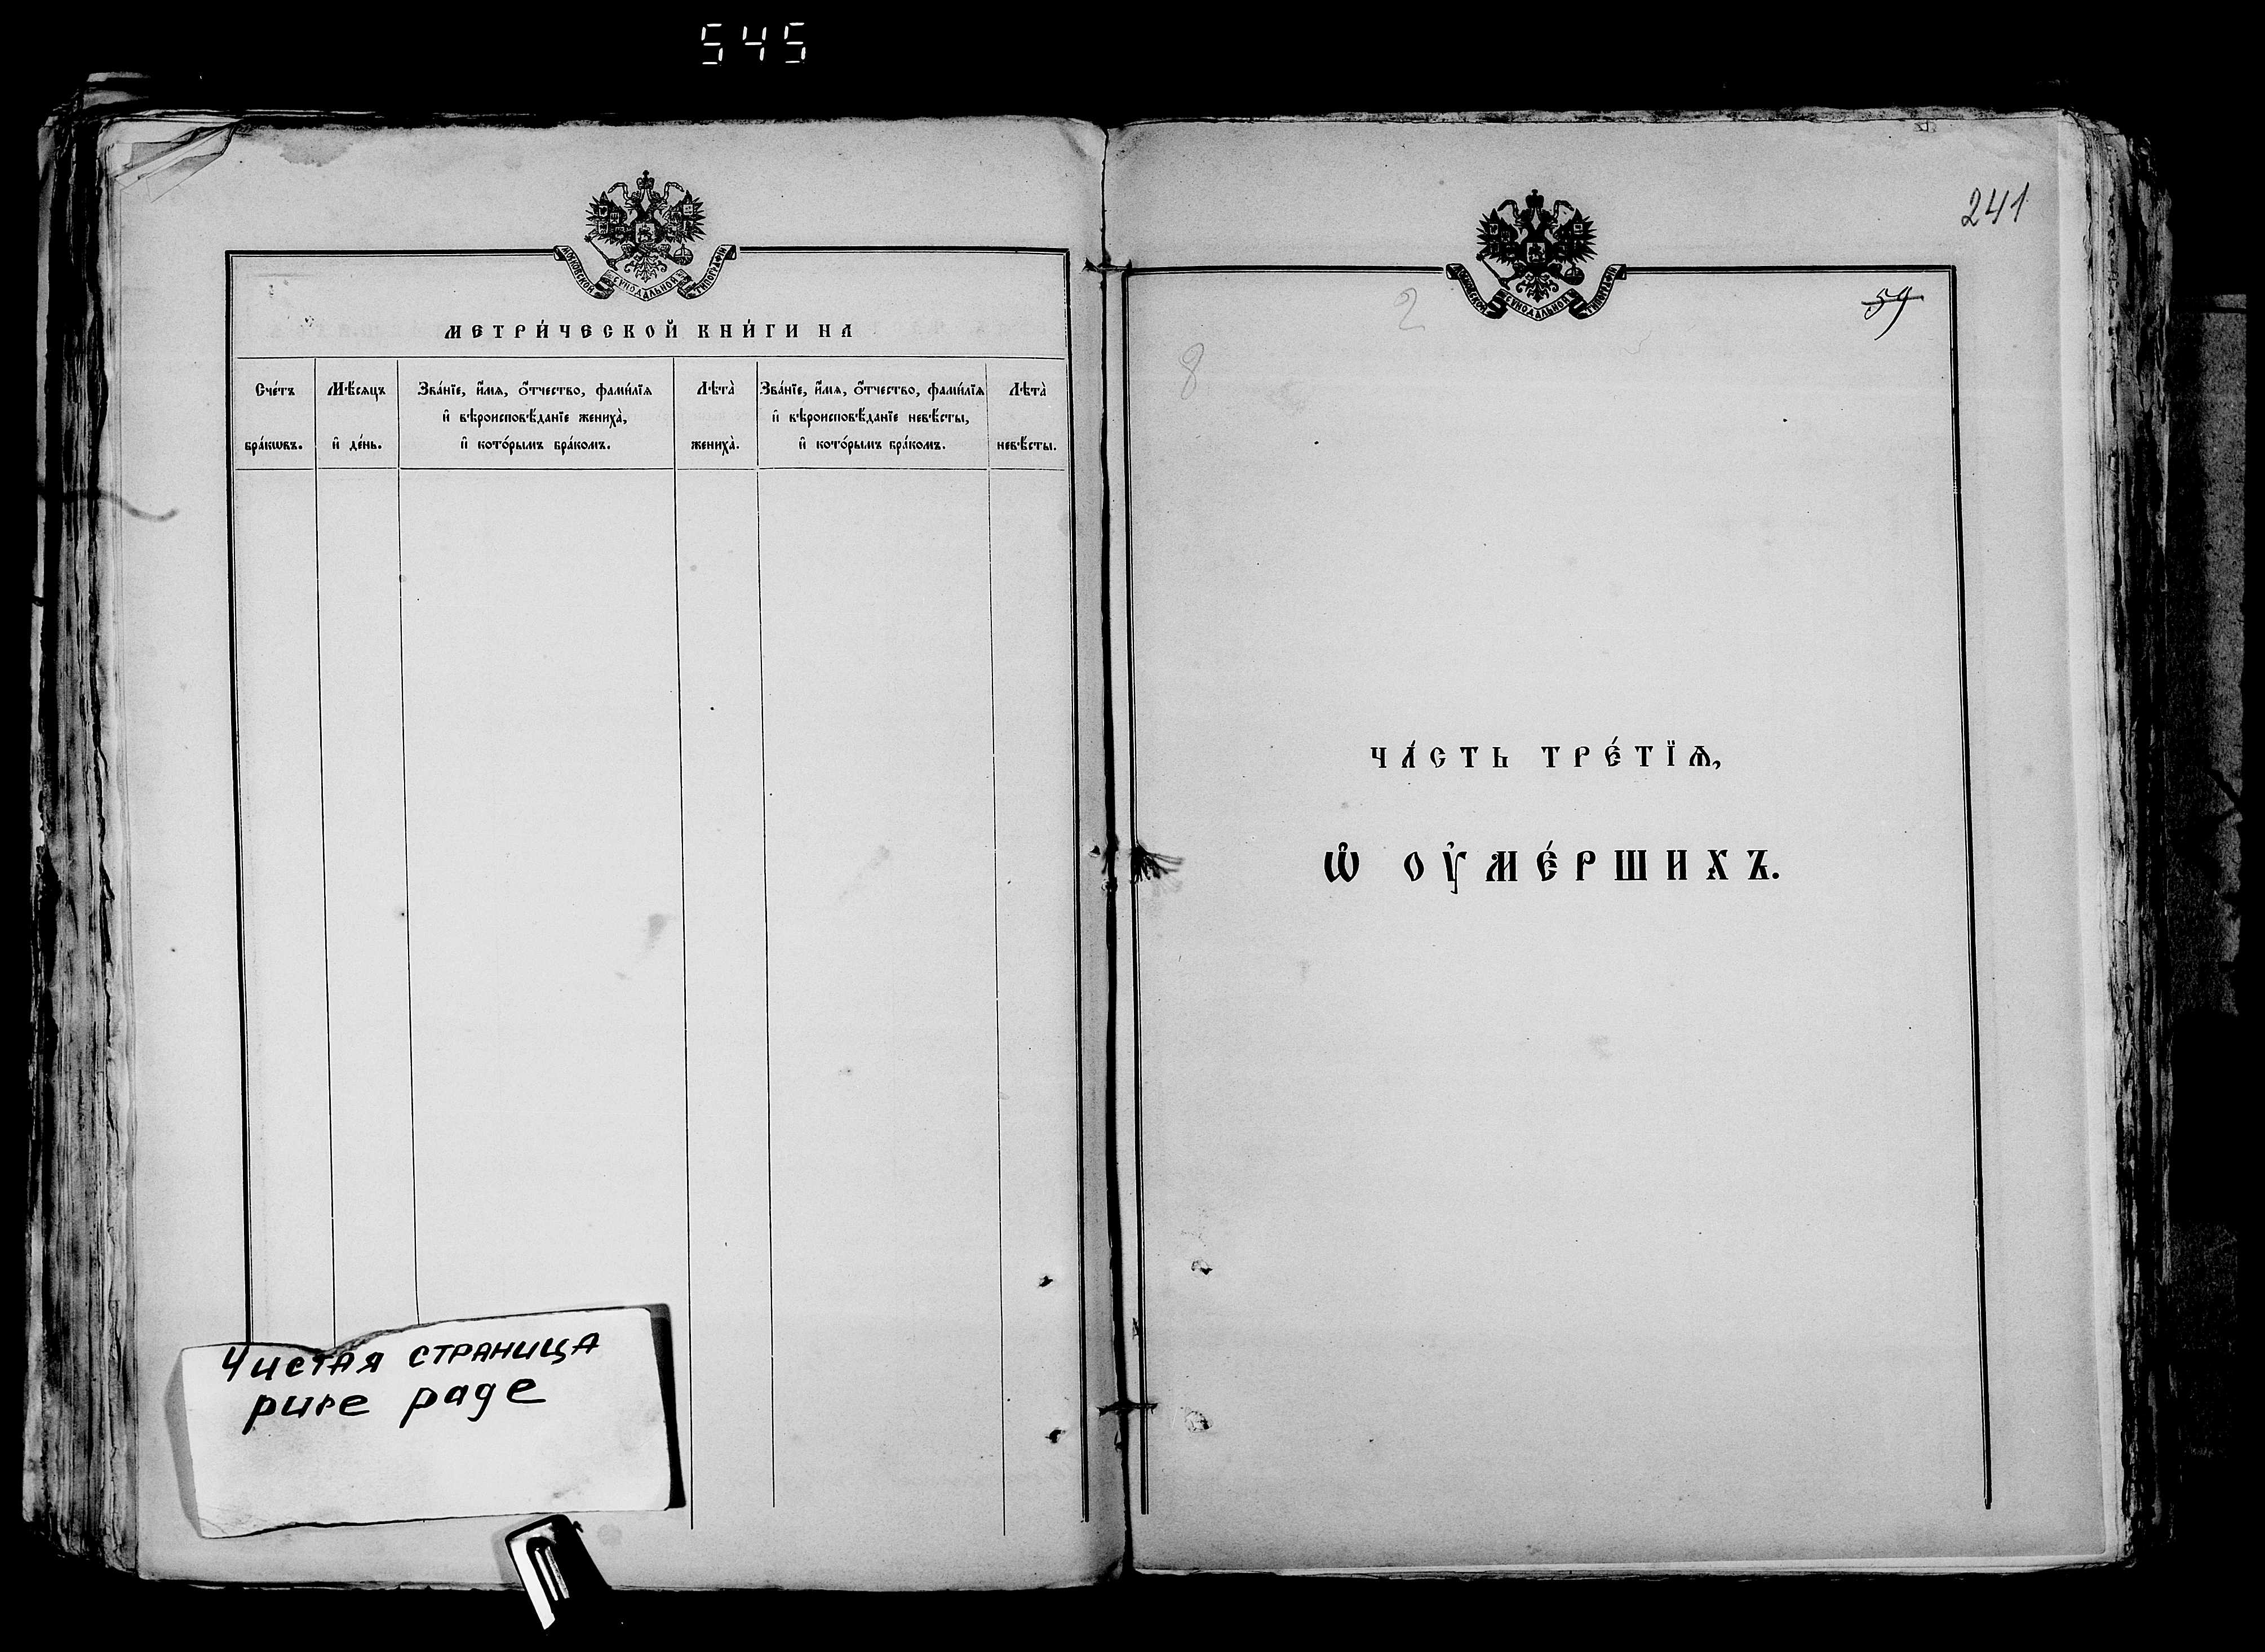 545
МОСКОВСКОЙ СѴНОДАЛЬНОЙ ТИПОГРАФІИ
МЕТРИ́ЧЕСКОЙ КНИ́ГИ НА
Сче́тъ бра́кѡвъ.
Мѣ́сяцъ и҆ де́нь.
Зва́нїе, и҆́мѧ, ѻ҆́тчество, фами́лїѧ
и҆ вѣроисповѣ́данїе жениха̀,
и҆ кото́рымъ бра́комъ.
Лѣта̀ жениха̀.
Зва́нїе, и҆́мѧ, ѻ҆́тчество, фами́лїѧ
и҆ вѣроисповѣ́данїе невѣ́сты,
и҆ кото́рымъ бра́комъ.
Лѣта̀ невѣ́сты.
Чистая страница
pure page
241
МОСКОВСКОЙ СѴНОДАЛЬНОЙ ТИПОГРАФІИ
59
2
8
ЧА́СТЬ ТРЕ́ТЇѦ,
Ѡ҆ ОУ҆МЕ́РШИХЪ.